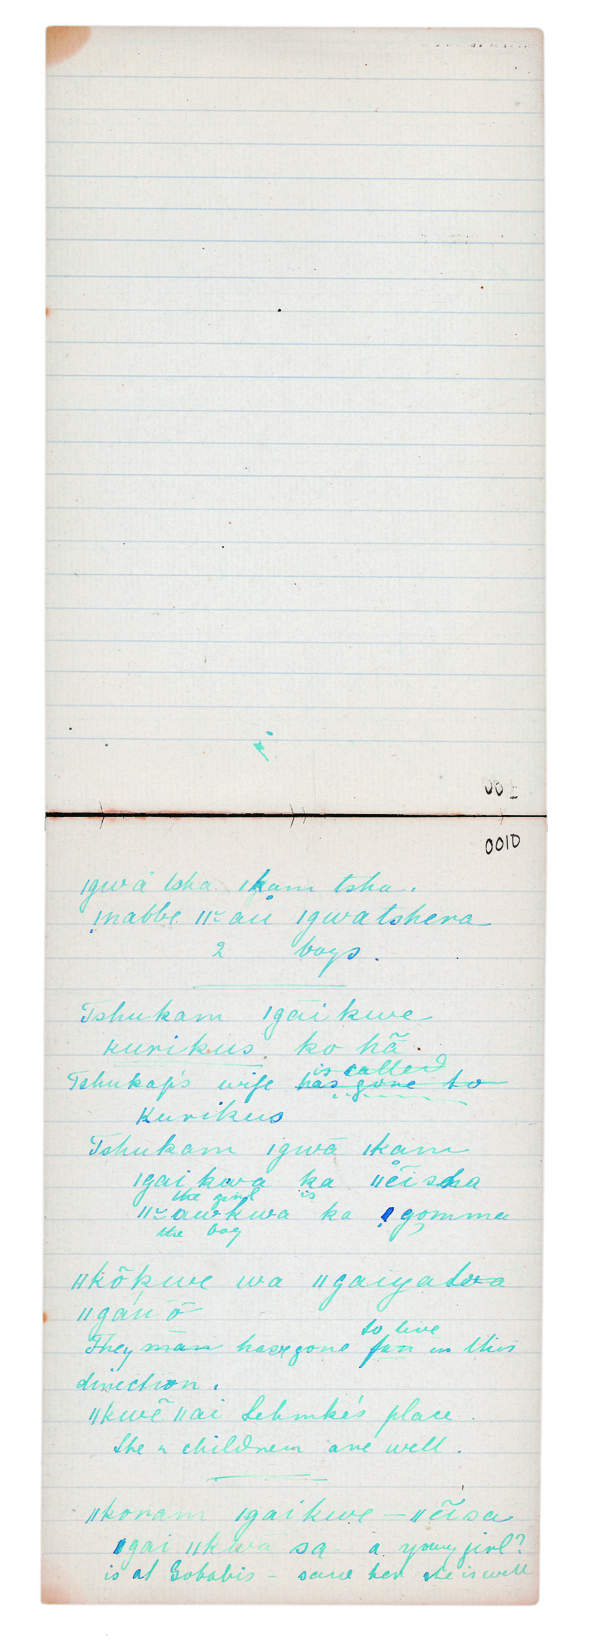 0010
ǀgwā tsha ǀkam tsha.
ǀnabbe ǁ~au ǀgwatshera
2 boys.
Tshukam ǀgāi kwe
Kurikus ko hã.
is called
Tshukap's wife has gone to
Kurikus
Tshukam ǀgwā ǀkam
ǀgai kwa ka ǁẽi sha
the girl is
ǁ~aukwa ka ǀgomma
the boy
ǁkõkwe wa ǁgaiyatwa
ǁgáú ō
to live
They man have gone far in this
direction.
ǁkwẽ ǁai Lehmke's place.
She & children are well.
ǁkoram ǀgaikwe — ǁẽisa
ǀgai ǁkwa sa a young girl?
is at Gobabis – saw her she is well